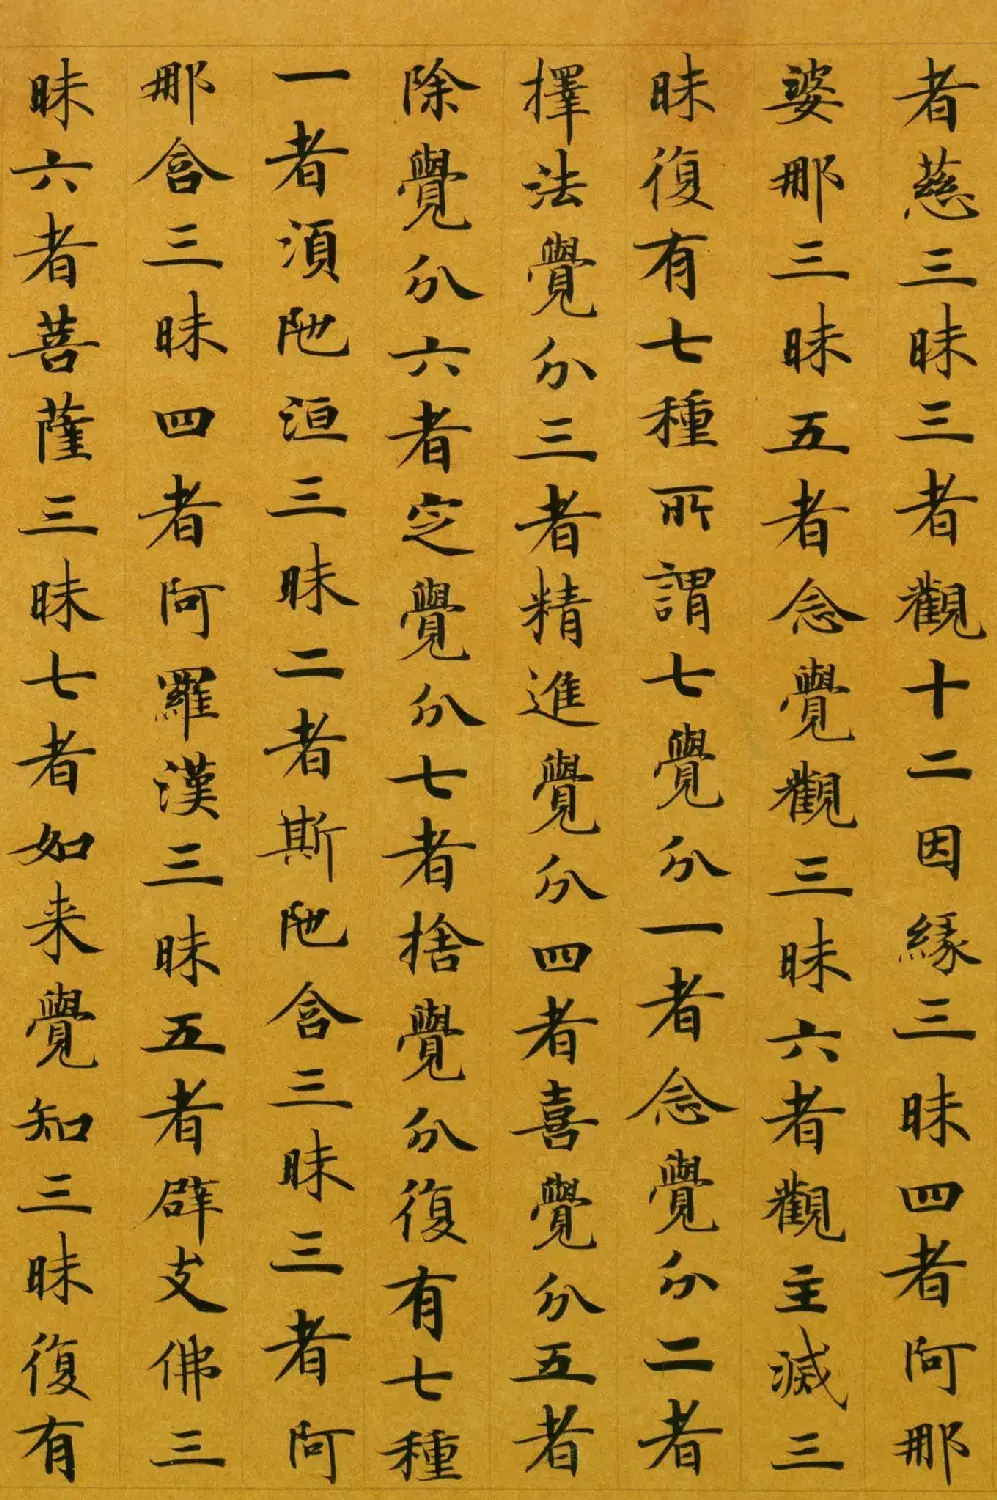 者慈三昧三者觀十二因緣三昧四者阿那
婆那三昧五者念覺觀三昧六者觀主滅三
昧復有七種所謂七覺分一者念覺分二者
擇法覺分三者精進覺分四者喜覺分五者
除覺分六者定覺分七者捨覺分復有七種
一者須陁洹三昧二者斯陁含三昧三者阿
那含三昧四者阿羅漢三昧五者辟支佛三
昧六者菩薩三昧七者如来覺知三昧復有